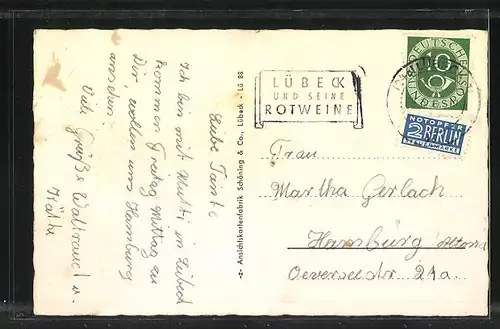 Liebe Tante
Ich bin mit Mutti in Lübeck
kommen Freitag Mittag zu
Dir, wollen uns Hamburg
ansehen.
Viele Grüße Waltraud u.
Käthe
-z- Ansichtskartenfabrik Schöning & Co., Lübeck - Lü 83
LÜBECK
UND SEINE
ROTWEINE
DEUTSCHE
10
BUNDESPOST
NOTOPFER
2 BERLIN
STEUERMARKE
Frau
Martha Gerlach
Hamburg Altona
Oeverseestr 24a.